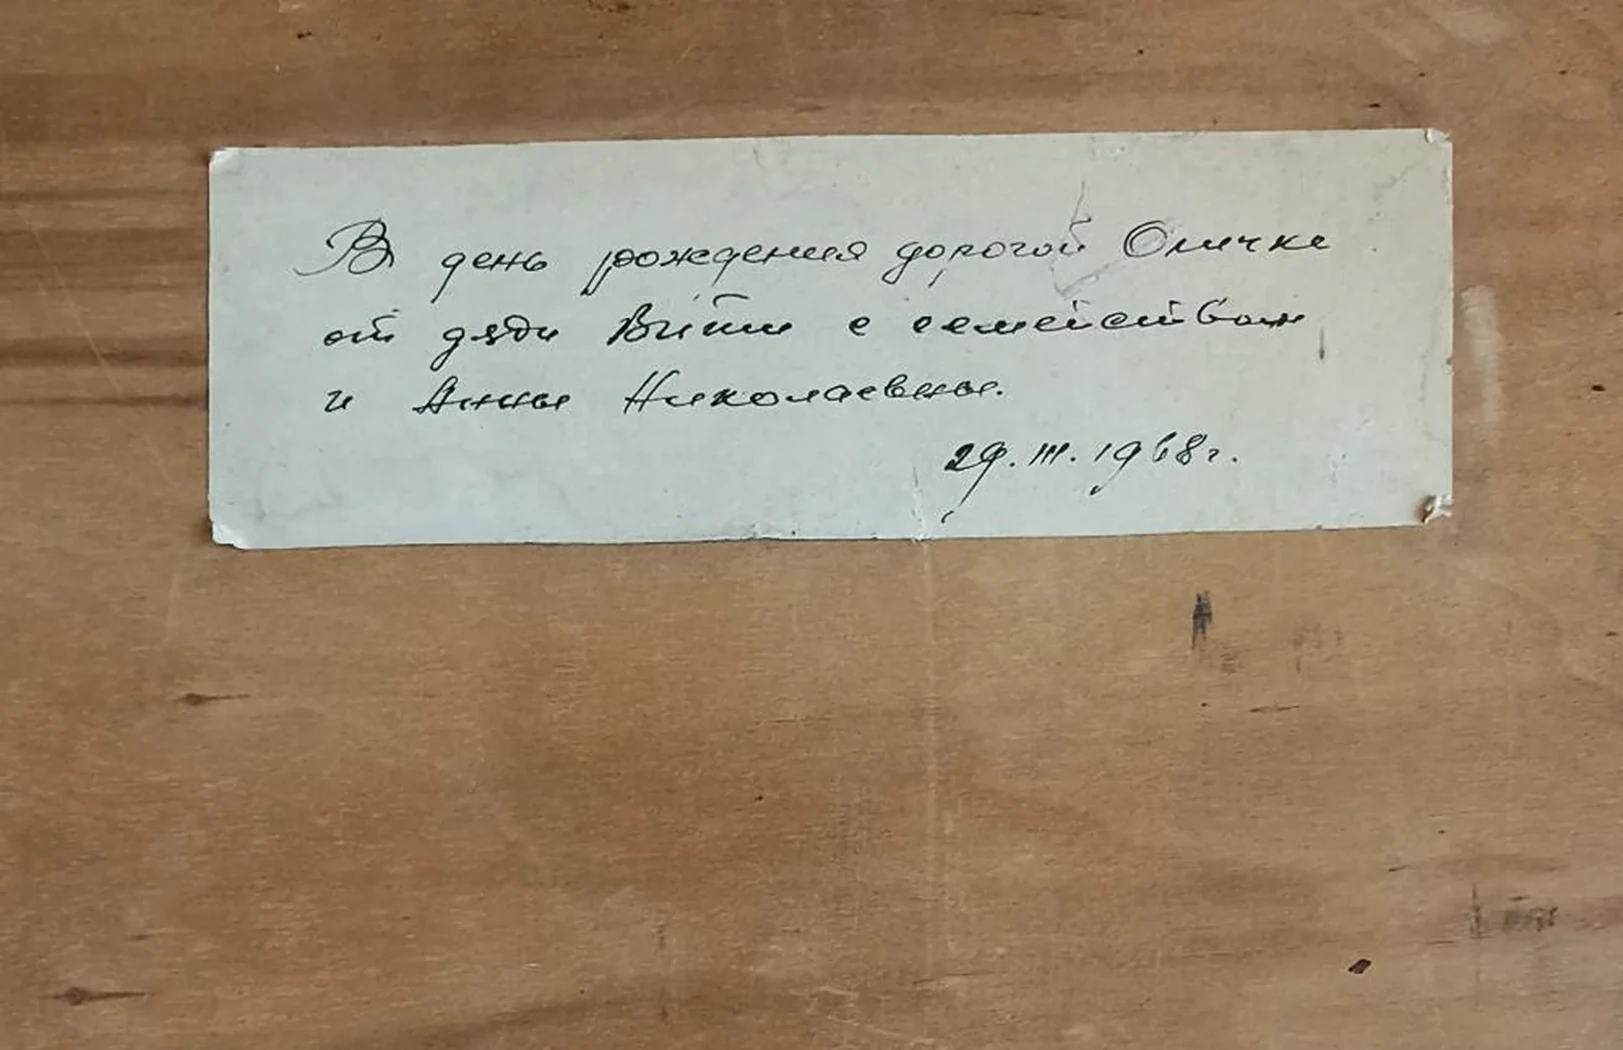 В день рождения дорогой Оличке
от дяди Вити с семейством
и Анны Николаевны.
29.III.1968г.